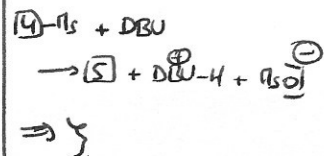 [4]-Ms + DBU
⟶ [5] + DBU⊕-H + MsO⊖
⟹ }